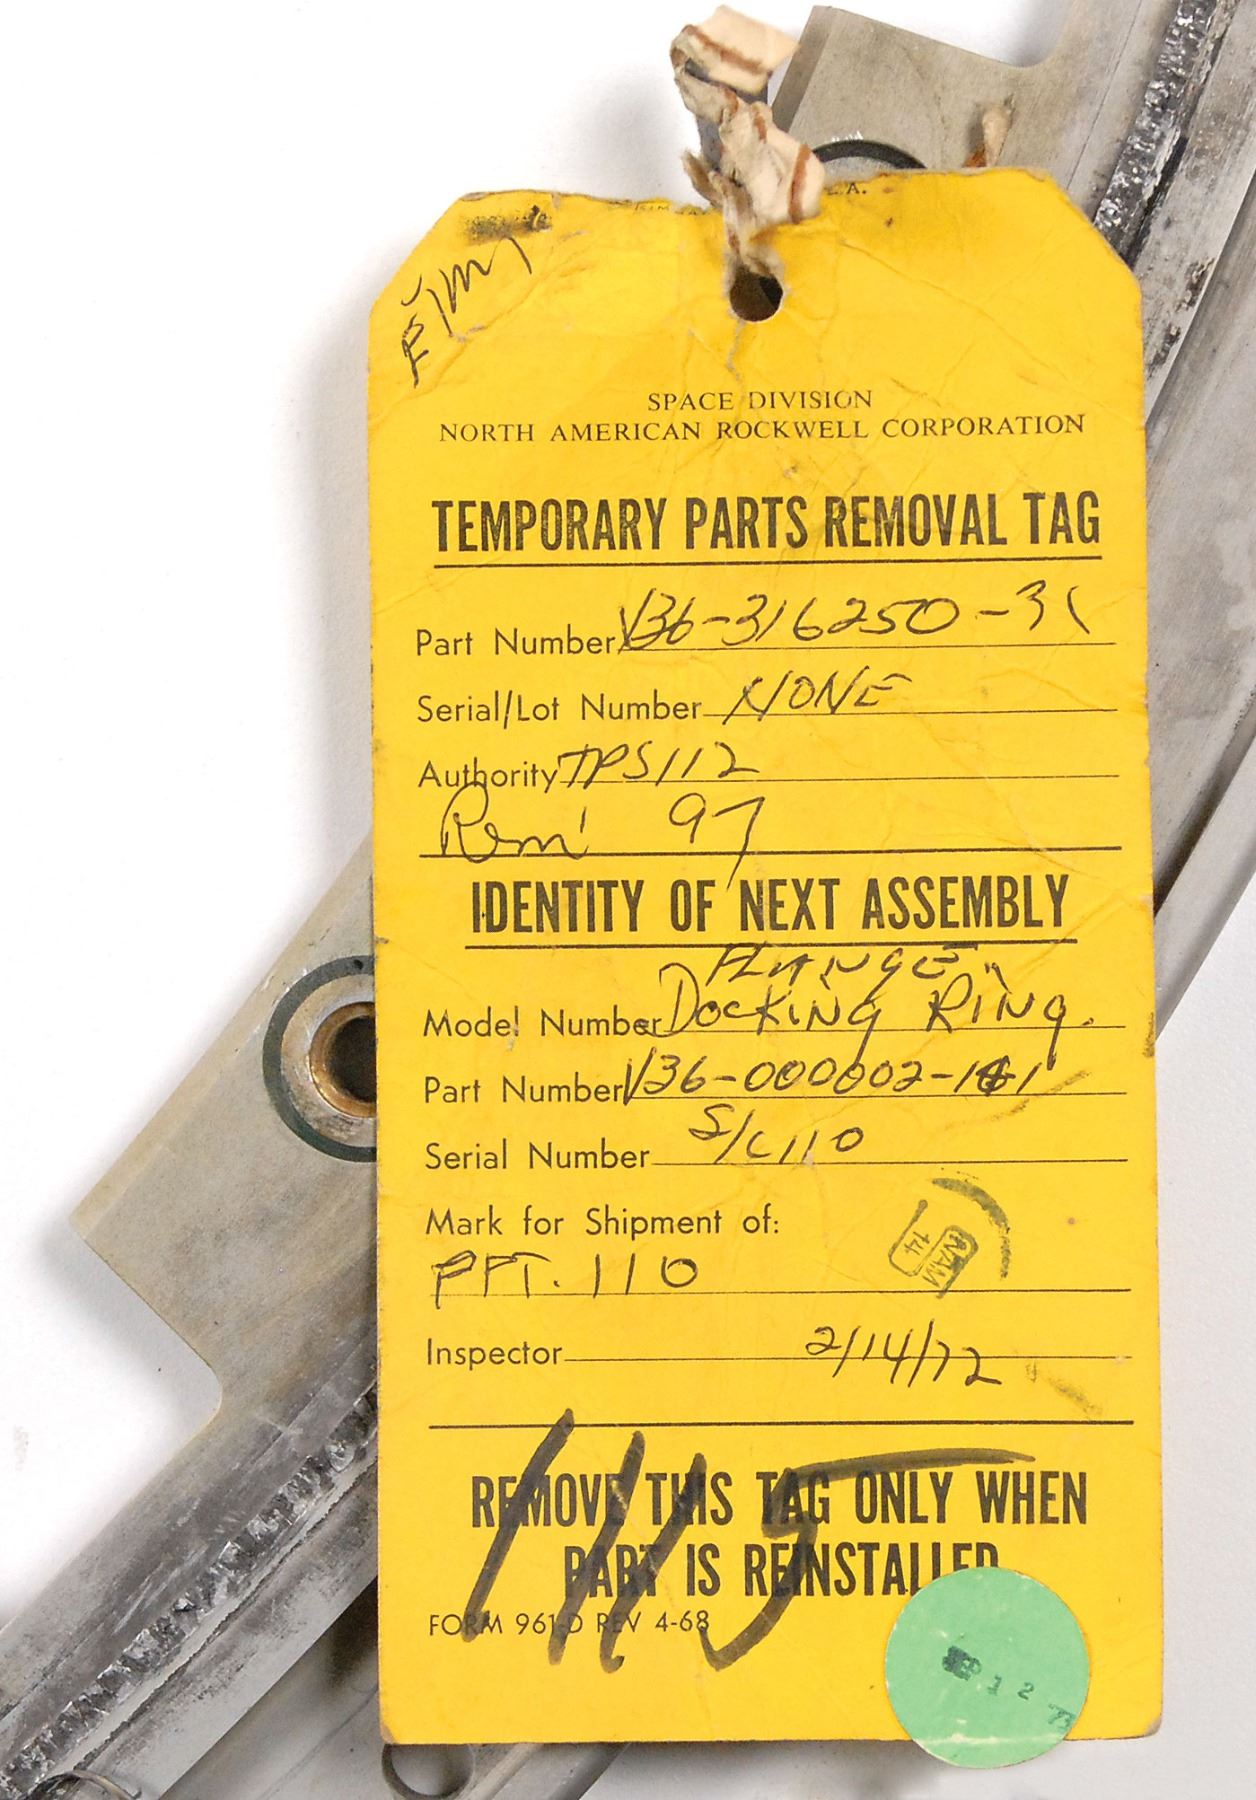 SPACE DIVISION
NORTH AMERICAN ROCKWELL CORPORATION
TEMPORARY PARTS REMOVAL TAG
Part Number V36-316250-31
Serial/Lot Number NONE
Authority TPS112
Rem' 97
IDENTITY OF NEXT ASSEMBLY
FLANGE
Model Number DOCKING RING.
Part Number V36-000002-161
Serial Number S/C110
Mark for Shipment of:
PFT. 110
NAM
14
Inspector 2/14/72
REMOVE THIS TAG ONLY WHEN
PART IS REINSTALLED
FORM 961-D REV 4-68
1115
12